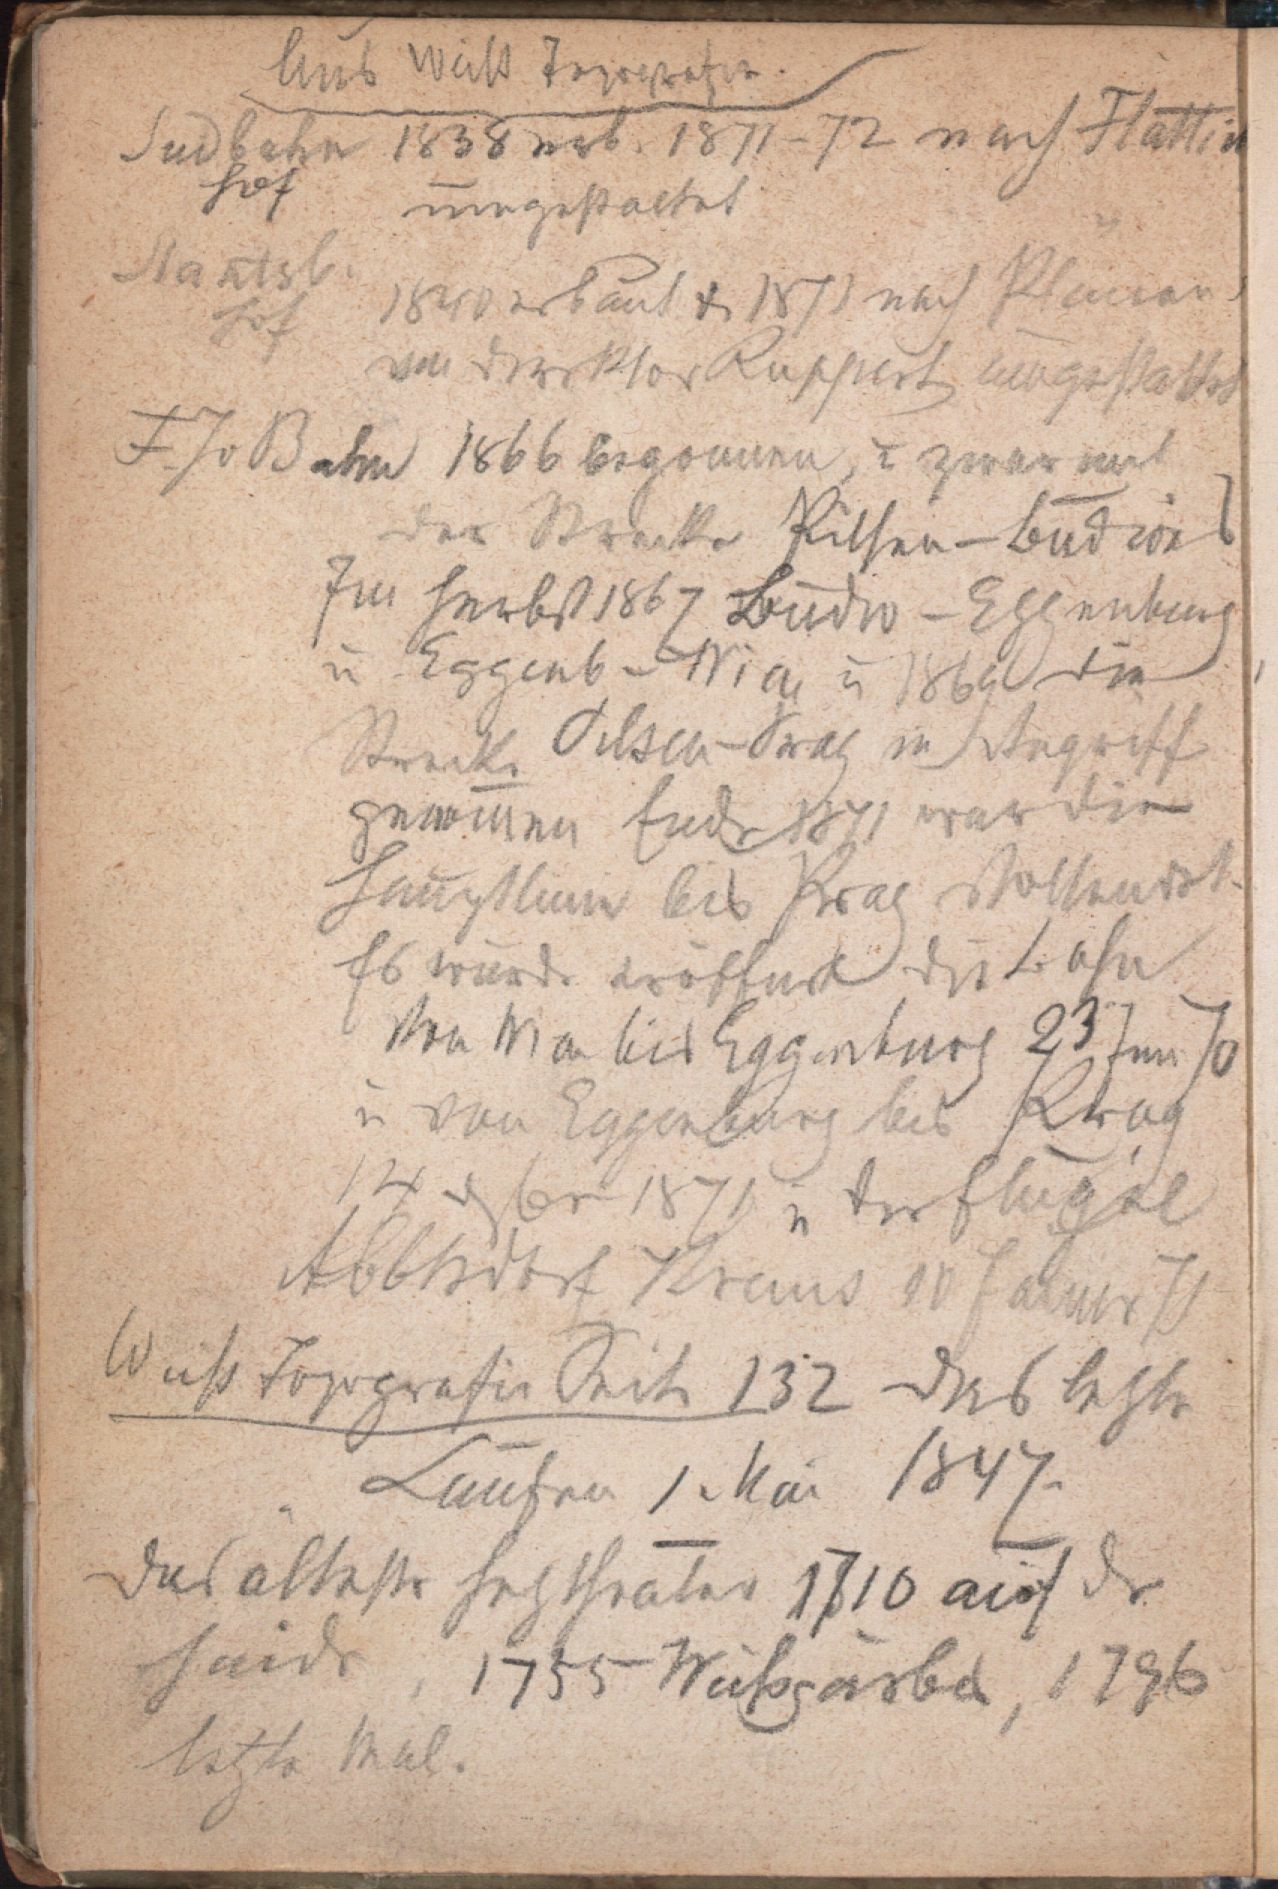 Aus Weiß Topografie.
Südbahn 1838 erb. 1871–72 nach Flattich
hof umgestaltet
Staatsb.
hof 1840 erbaut & 1871 nach Plänen
von Direktor Ruppert umgestaltet
F. Jos Bahn 1866 begonnen, u zwar mit
der Strecke Pilsen – Budweis
Im Herbst 1867 Budw – Eggenburg
u Eggenb – Wien u 1869 die
Strecke Pilsen – Prag in Angriff
genommen Ende 1871 war die
Hauptlinie bis Prag vollendet.
Es wurde eröffnet die Bahn
von Wien bis Eggenburg 23 Juni 70
u von Eggenburg bis Prag
14 dzber 1871 u der Flügel
Abbtsdorf Krems 10 Jänner 72
Weiß Topografie Seite 132 das letzte
Laufen 1. Mai 1847.
Das älteste Hetztheater 1710 auf der
Haide, 1755 Weißgärber, 1796
letzte Mal.